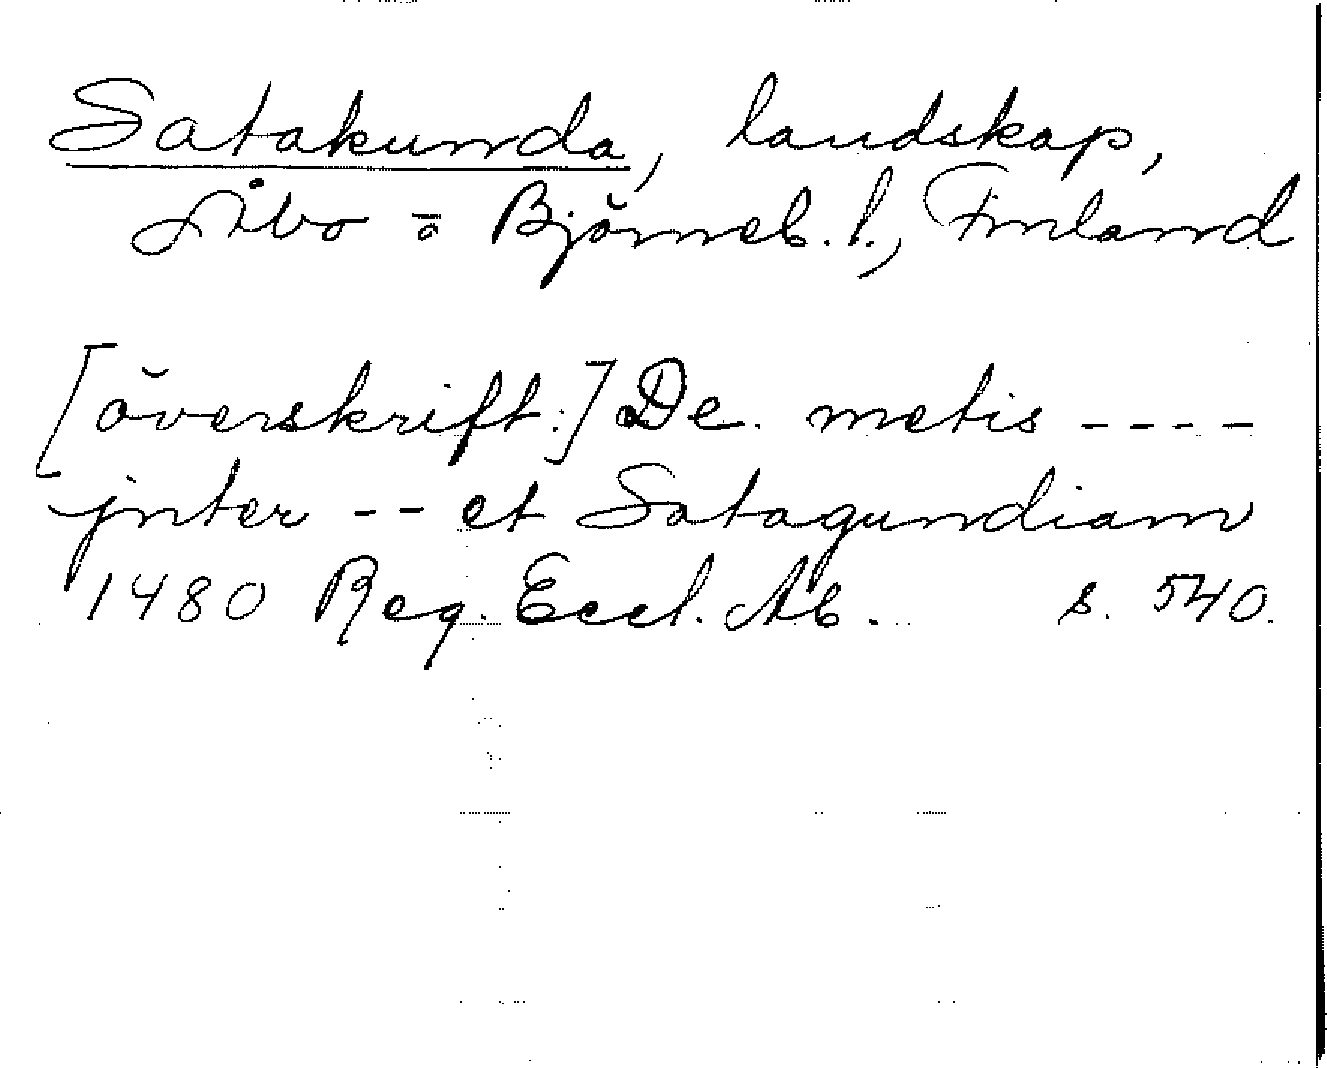 Satakunda, landskap,
Åbo o Björneb. l., Finland
[överskrift:] De metis ----
jnter -- et Satagundiam
1480 Reg. Eccl. Ab. s. 540.